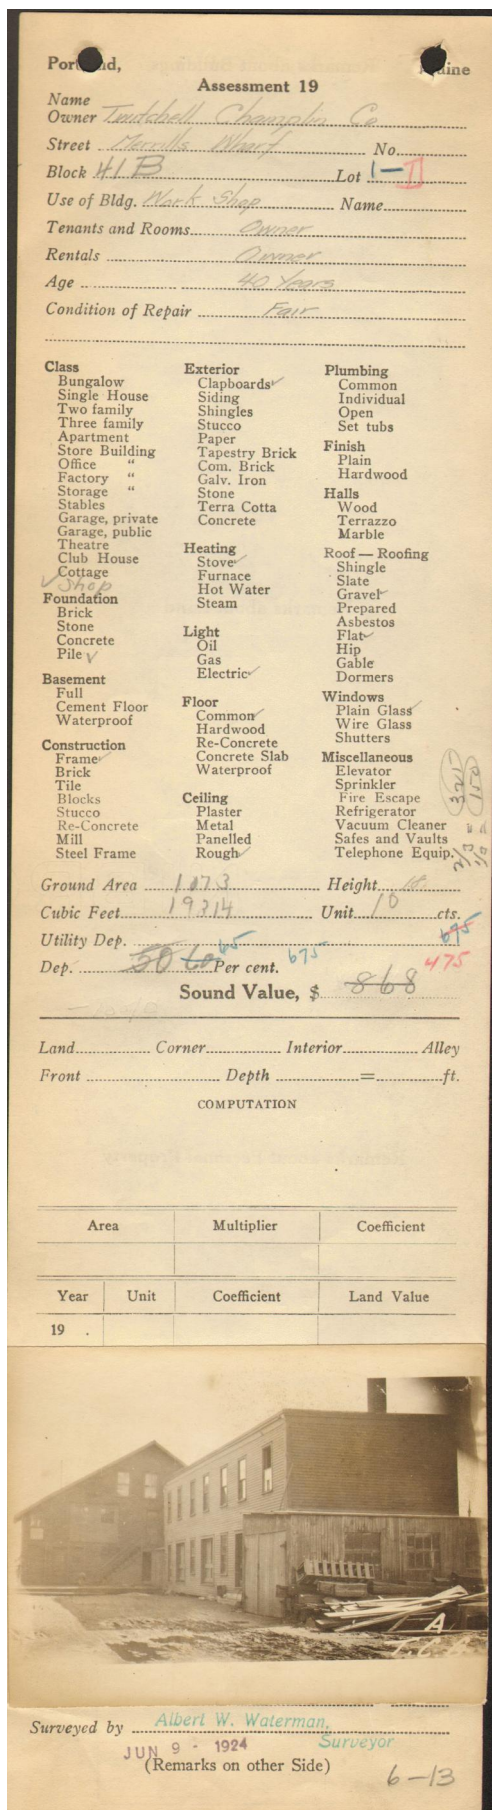 Portland, Maine
Assessment 19
Name
Owner Twitchell Champlin Co
Street Merrills Wharf No.
Block 41B Lot 1-D
Use of Bldg. Work Shop Name
Tenants and Rooms Owner
Rentals Owner
Age 40 Years
Condition of Repair Fair
Class
Bungalow
Single House
Two family
Three family
Apartment
Store Building
Office "
Factory "
Storage "
Stables
Garage, private
Garage, public
Theatre
Club House
Cottage
✓ Shop
Foundation
Brick
Stone
Concrete
Pile ✓
Basement
Full
Cement Floor
Waterproof
Construction
Frame ✓
Brick
Tile
Blocks
Stucco
Re-Concrete
Mill
Steel Frame
Exterior
Clapboards ✓
Siding
Shingles
Stucco
Paper
Tapestry Brick
Com. Brick
Galv. Iron
Stone
Terra Cotta
Concrete
Heating
Stove ✓
Furnace
Hot Water
Steam
Light
Oil
Gas
Electric ✓
Floor
Common ✓
Hardwood
Re-Concrete
Concrete Slab
Waterproof
Ceiling
Plaster
Metal
Panelled
Rough ✓
Plumbing
Common
Individual
Open
Set tubs
Finish
Plain
Hardwood
Halls
Wood
Terrazzo
Marble
Roof — Roofing
Shingle
Slate
Gravel ✓
Prepared
Asbestos
Flat ✓
Hip
Gable
Dormers
Windows
Plain Glass ✓
Wire Glass
Shutters
Miscellaneous
Elevator
Sprinkler
Fire Escape
Refrigerator
Vacuum Cleaner
Safes and Vaults
Telephone Equip.
2/3 = 325
1/3 = 150
Ground Area 1073 Height 18
Cubic Feet 19314 Unit 10 cts.
Utility Dep. 675
Dep. 50 60 65 Per cent. 675 475
Sound Value, $ 868
Land Corner Interior Alley
Front Depth = ft.
COMPUTATION
Area Multiplier Coefficient
Year Unit Coefficient Land Value
19 .
A
T.C.A.
Surveyed by Albert W. Waterman,
Surveyor
JUN 9 - 1924
(Remarks on other Side)
6-13